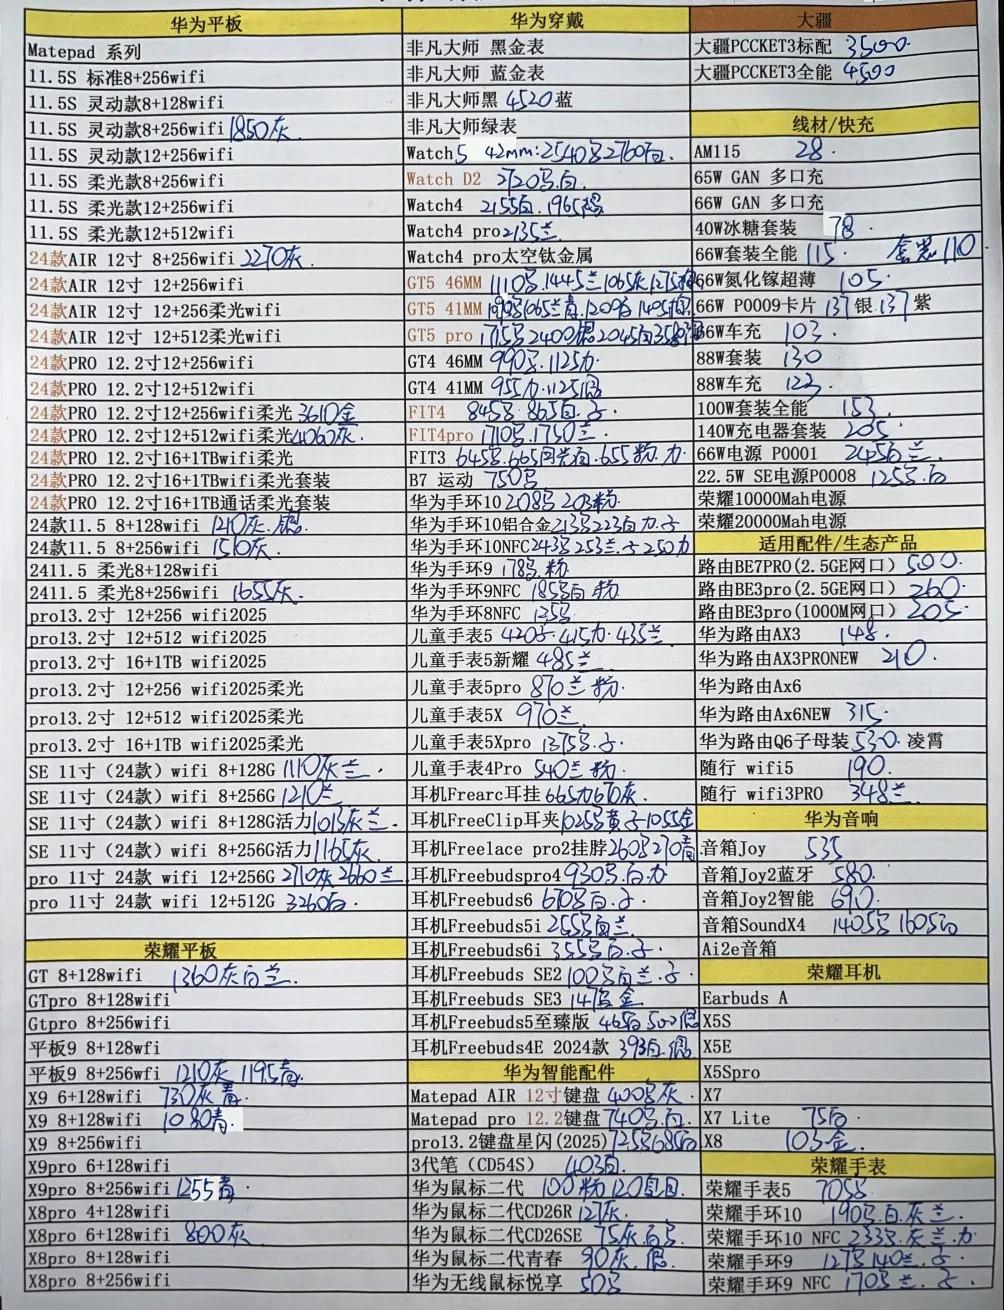 华为平板
Matepad 系列
11.5S 标准8+256wifi
11.5S 灵动款8+128wifi
11.5S 灵动款8+256wifi 1850灰
11.5S 灵动款12+256wifi
11.5S 柔光款8+256wifi
11.5S 柔光款12+256wifi
11.5S 柔光款12+512wifi
24款AIR 12寸 8+256wifi 2270灰
24款AIR 12寸 12+256wifi
24款AIR 12寸 12+256柔光wifi
24款AIR 12寸 12+512柔光wifi
24款PRO 12.2寸12+256wifi
24款PRO 12.2寸12+512wifi
24款PRO 12.2寸12+256wifi柔光 3610金
24款PRO 12.2寸12+512wifi柔光4060灰.
24款PRO 12.2寸16+1TBwifi柔光
24款PRO 12.2寸16+1TBwifi柔光套装
24款PRO 12.2寸16+1TB通话柔光套装
24款11.5 8+128wifi 1210灰.
24款11.5 8+256wifi 1510灰
2411.5 柔光8+128wifi
2411.5 柔光8+256wifi 1655灰.
pro13.2寸 12+256 wifi2025
pro13.2寸 12+512 wifi2025
pro13.2寸 16+1TB wifi2025
pro13.2寸 12+256 wifi2025柔光
pro13.2寸 12+512 wifi2025柔光
pro13.2寸 16+1TB wifi2025柔光
SE 11寸（24款）wifi 8+128G 1110灰兰.
SE 11寸（24款）wifi 8+256G 1210兰
SE 11寸（24款）wifi 8+128G活力1015灰兰.
SE 11寸（24款）wifi 8+256G活力1165灰.
pro 11寸 24款 wifi 12+256G 2710灰2660兰
pro 11寸 24款 wifi 12+512G 3260白.
荣耀平板
GT 8+128wifi 1360灰白兰.
GTpro 8+128wifi
Gtpro 8+256wifi
平板9 8+128wfi
平板9 8+256wfi 1210灰 1195青.
X9 6+128wifi 730灰青.
X9 8+128wifi 1080青.
X9 8+256wifi
X9pro 6+128wifi
X9pro 8+256wifi 1255青.
X8pro 4+128wifi
X8pro 6+128wifi 800灰
X8pro 8+128wifi
X8pro 8+256wifi
华为穿戴
非凡大师 黑金表
非凡大师 蓝金表
非凡大师黑 4520蓝
非凡大师绿表
Watch5 42mm:2540黑2760白.
Watch D2 2720黑.白.
Watch4 2155白.1965
Watch4 pro2135兰.
Watch4 pro太空钛金属
GT5 46MM 1110黑.1445兰1065灰
GT5 41MM
GT5 pro 1715黑
GT4 46MM 990黑.1125力
GT4 41MM 955力.1125
FIT4 845黑.865白.子.
FIT4pro 1710黑.1750兰.
FIT3 645黑.665 .655粉.力.
B7 运动 750黑
华为手环10 208黑 203粉
华为手环10铝合金213黑223白力.子
华为手环10NFC243黑253兰.子250力
华为手环9 178黑.粉
华为手环9NFC 185黑白 粉.
华为手环8NFC 135黑
儿童手表5 420子.415力.435兰
儿童手表5新耀 485兰
儿童手表5pro 870兰粉.
儿童手表5X 970兰.
儿童手表5Xpro 1375黑.子.
儿童手表4Pro 540兰粉.
耳机Frearc耳挂 665力670灰.
耳机FreeClip耳夹1025黑黄子1055金
耳机Freelace pro2挂脖260黑270青.
耳机Freebudspro4 930黑.白.力
耳机Freebuds6 670黑白.子.
耳机Freebuds5i 255黑白兰.
耳机Freebuds6i 355黑白.子.
耳机Freebuds SE2 100黑白兰.子
耳机Freebuds SE3 147黑金
耳机Freebuds5至臻版 465白 500
耳机Freebuds4E 2024款 393白.
华为智能配件
Matepad AIR 12寸键盘 400黑灰
Matepad pro 12.2键盘740黑.白.
pro13.2键盘星闪(2025)725黑685白
3代笔（CD54S） 403白.
华为鼠标二代 100粉
华为鼠标二代CD26R 127灰.
华为鼠标二代CD26SE 75灰白黑
华为鼠标二代青春 90灰.
华为无线鼠标悦享 50黑
大疆
大疆PCCKET3标配 3500.
大疆PCCKET3全能 4500
线材/快充
AM115 28.
65W GAN 多口充
66W GAN 多口充
40W冰糖套装 78.
66W套装全能 115. 110
66W氮化镓超薄 105.
66W P0009卡片 137银137紫
66W车充 103.
88W套装 130
88W车充 123.
100W套装全能 153.
140W充电器套装 205.
66W电源 P0001 245白兰.
22.5W SE电源P0008 125黑.白
荣耀10000Mah电源
荣耀20000Mah电源
适用配件/生态产品
路由BE7PRO(2.5GE网口) 500.
路由BE3pro(2.5GE网口) 260.
路由BE3pro(1000M网口) 205.
华为路由AX3 148.
华为路由AX3PRONEW 210.
华为路由Ax6
华为路由Ax6NEW 315.
华为路由Q6子母装530.凌霄
随行 wifi5 190.
随行 wifi3PRO 348兰.
华为音响
音箱Joy 535
音箱Joy2蓝牙 580.
音箱Joy2智能 690.
音箱SoundX4 1405黑 1605白
Ai2e音箱
荣耀耳机
Earbuds A
X5S
X5E
X5Spro
X7
X7 Lite 75白
X8 103金.
荣耀手表
荣耀手表5 705黑.
荣耀手环10 190黑.白.灰兰.
荣耀手环10 NFC 233黑.灰兰.力
荣耀手环9 127黑140兰.子.
荣耀手环9 NFC 170黑兰.子.